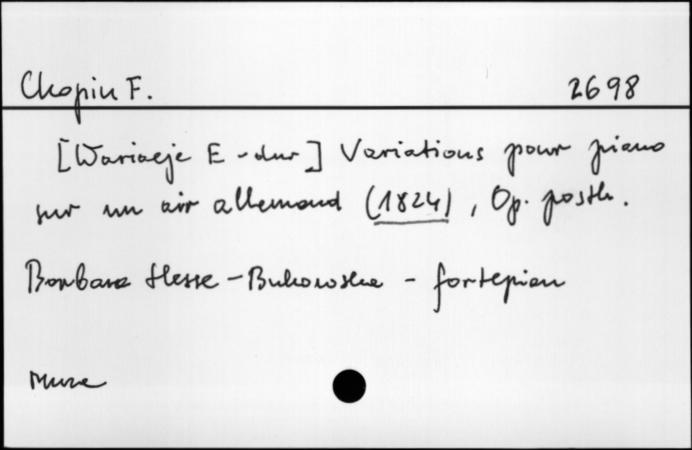 Chopin F. 2698
[Wariacje E-dur] Variations pour piano
sur un air allemand (1824), Op. posth.
Barbara Hesse-Bukowska - fortepian
Muza